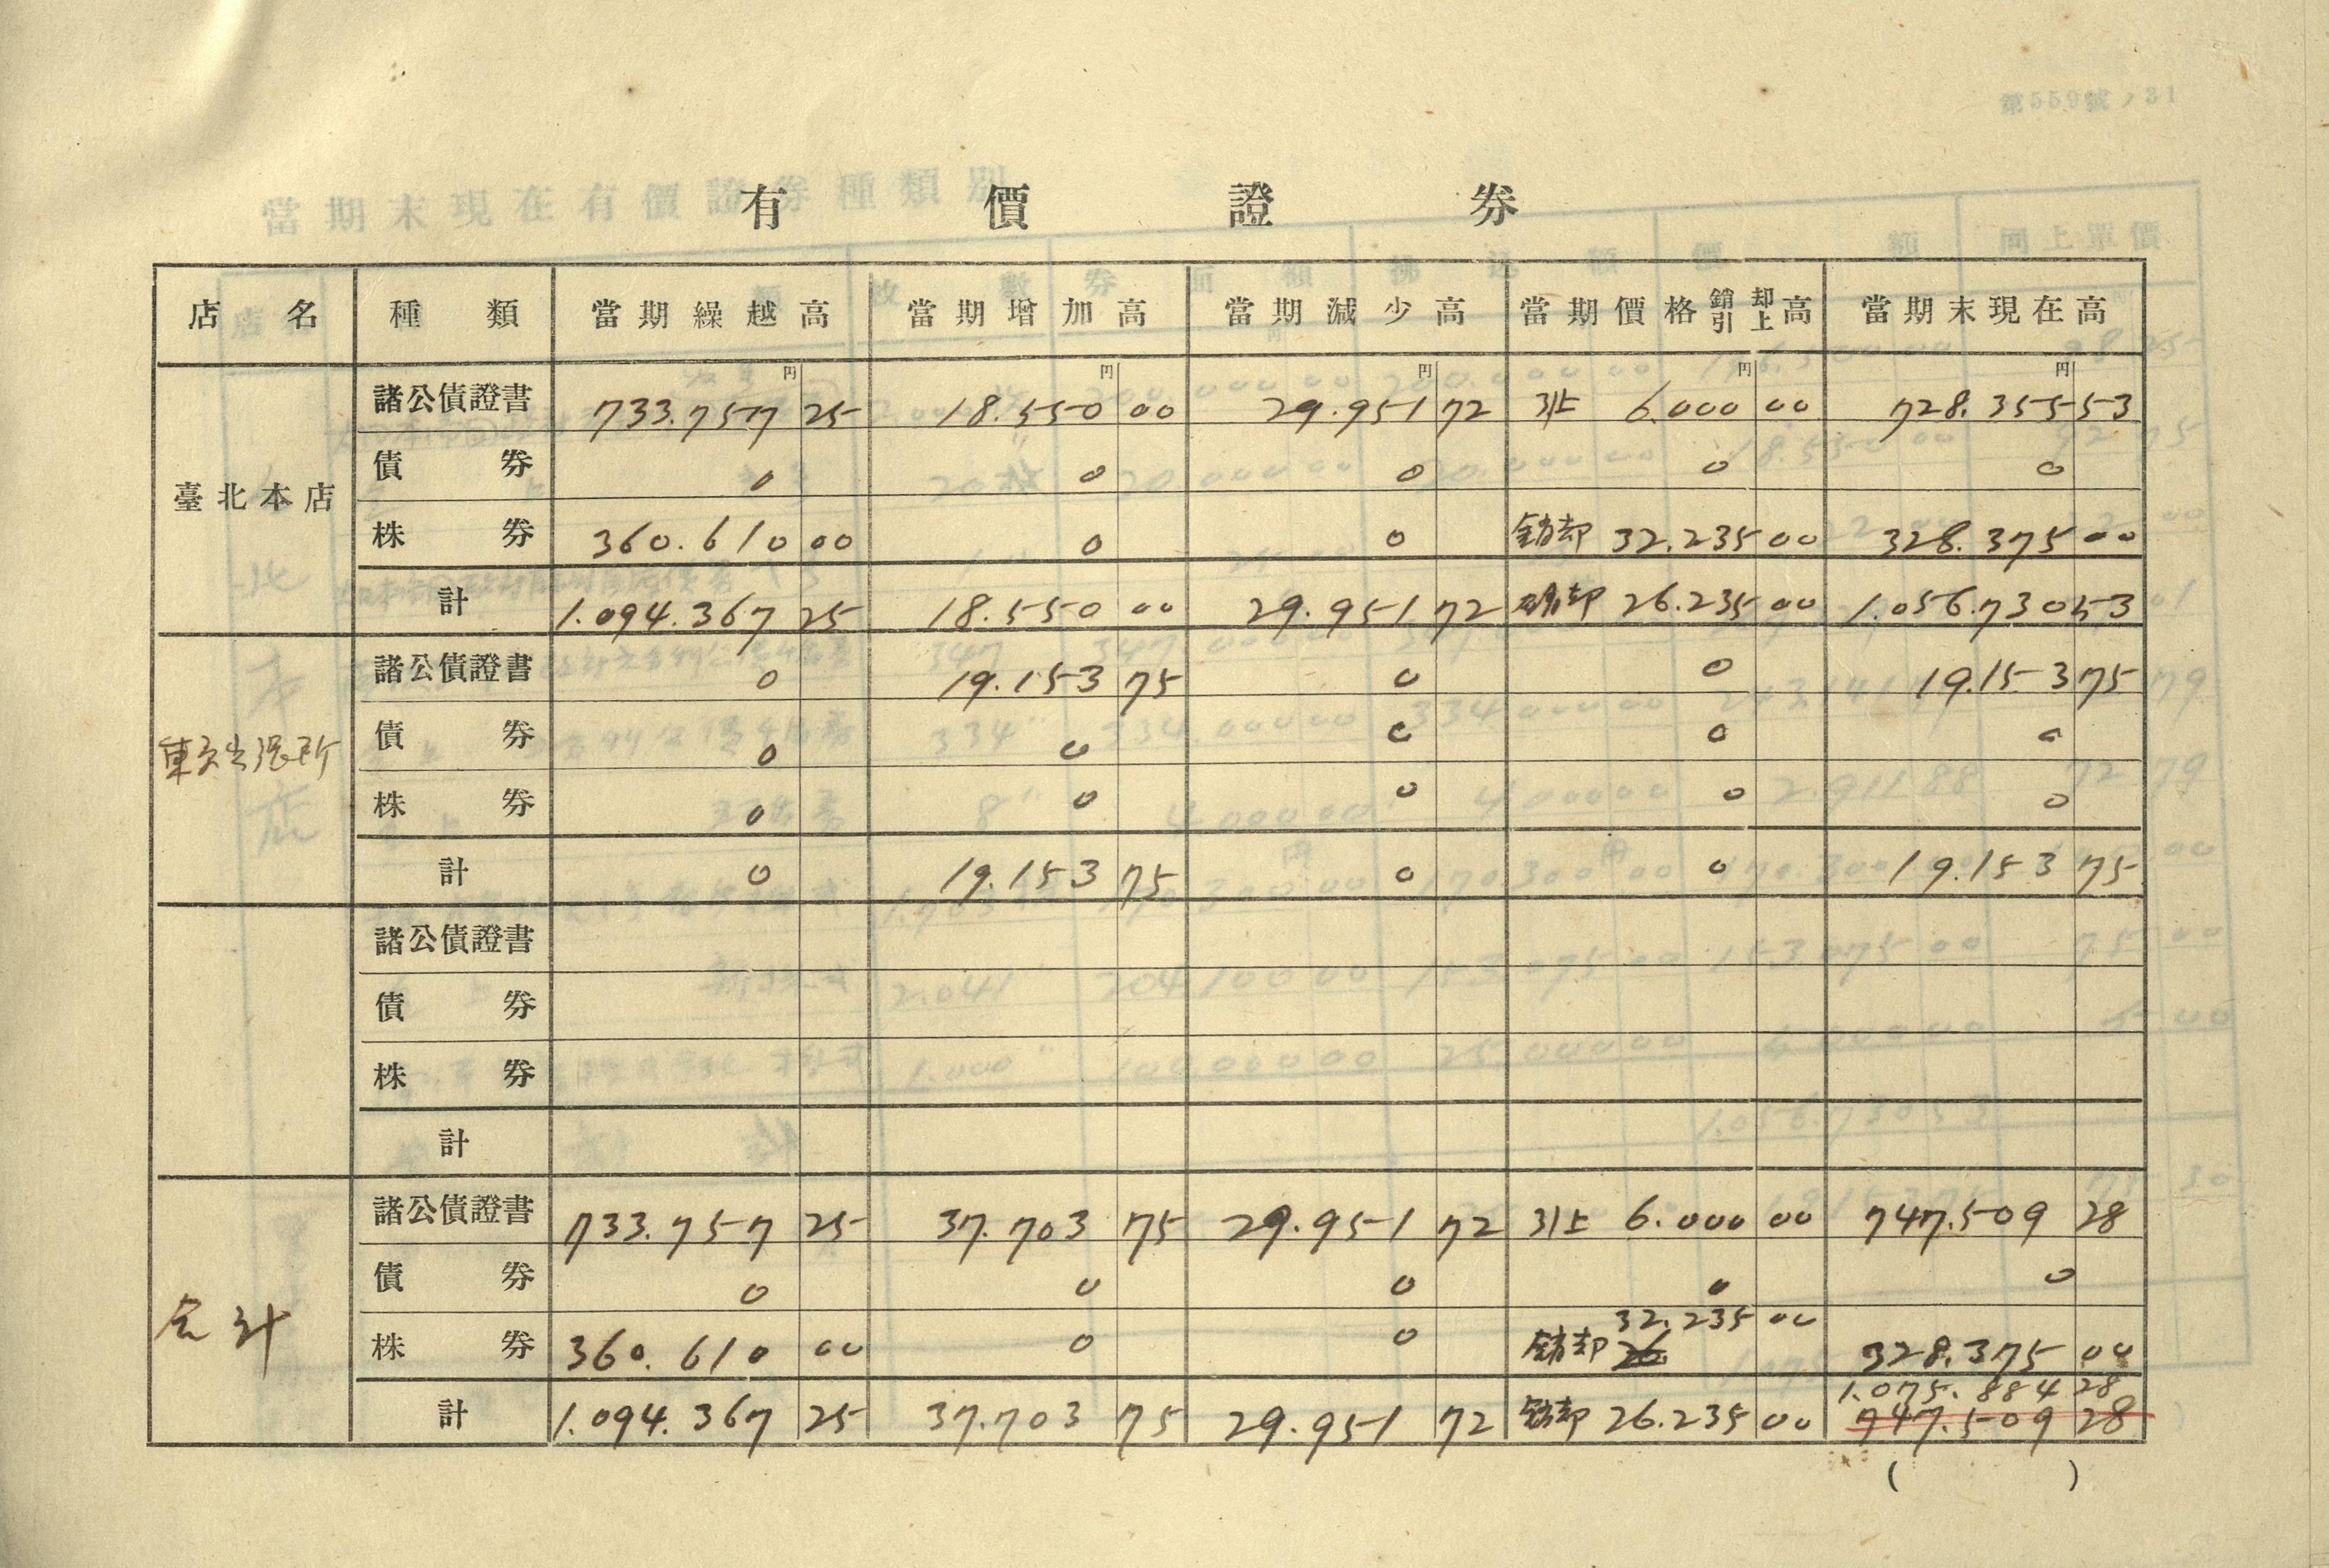 有價證券
店名 種類 當期繰越高 當期增加高 當期減少高 當期價格銷却引上高 當期末現在高
円 円 円 円 円
臺北本店
諸公債證書 733.757 25 18.550 00 29.951 72 引上 6.000 00 728.355 53
債券 0 0 0 0 0
株券 360.610 00 0 0 銷却 32.235 00 328.375 00
計 1.094.367 25 18.550 00 29.951 72 銷却 26.235 00 1.056.730 53
東京出張所
諸公債證書 0 19.153 75 0 0 19.153 75
債券 0 0 0 0 0
株券 0 0 0 0 0
計 0 19.153 75 0 0 19.153 75
諸公債證書
債券
株券
計
合計
諸公債證書 733.757 25 37.703 75 29.951 72 引上 6.000 00 747.509 28
債券 0 0 0 0 0
32.235 00
株券 360.610 00 0 0 銷却 26 328.375 00
1.075.884 28
計 1.094.367 25 37.703 75 29.951 72 銷却 26.235 00 747.509 28
( )